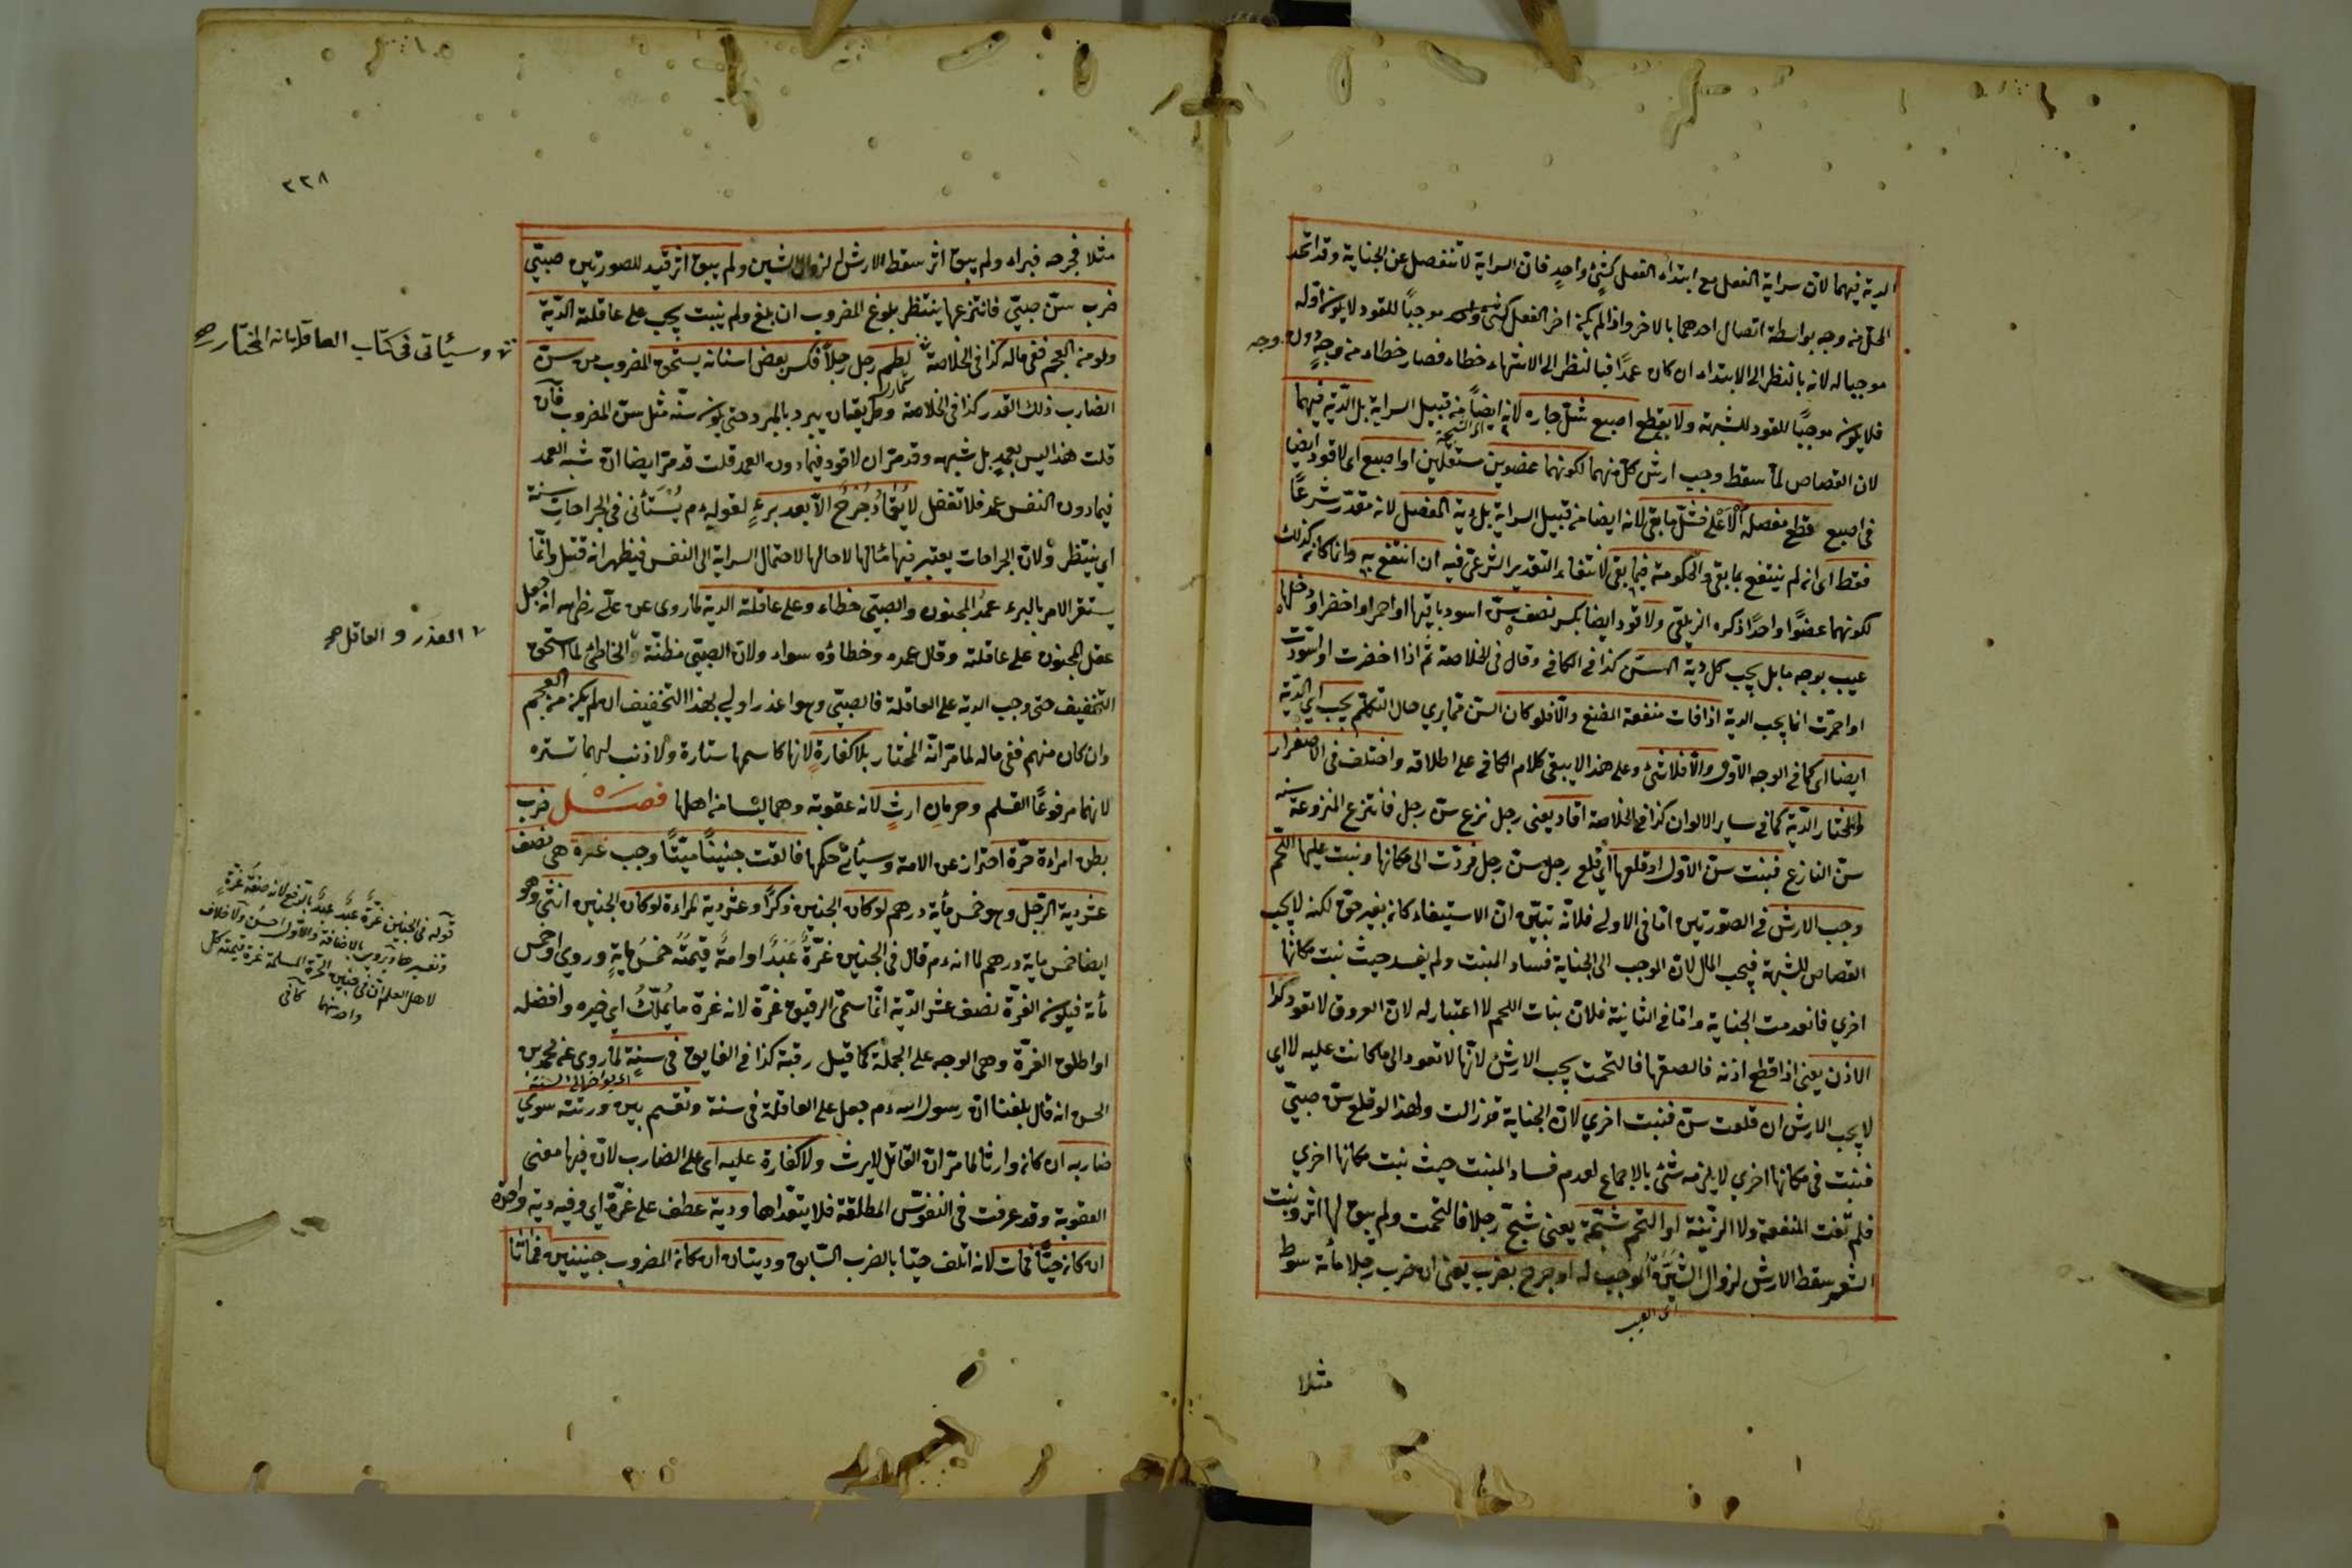 الدية فيهما لان سراية الفعل مع ابتداء الفعل كشئ واحد فان السراية لا تنفصل عن الجناية وقد اتحد
المحل من وجه بواسطة اتصال احدهما بالاخر واذا لم يكن اخر الفعل كشئ واحد موجبًا للقود لا يكون اوله
موجبا له لانه بالنظر الى الابتداء ان كان عمدًا فبالنظر الى الانتهاء خطاء فصار خطاء من وجهٍ دون وجه
فلا يكون موجبًا للقود للشبهة ولا بقطع اصبع شلّ جاره لانه ايضاً من قبيل السراية بل الدية فيهما
لان القصاص لمّا سقط وجب ارش كل منهما لكونهما عضوين مستقلين او اصبع اى لا قود ايضا
فى اصبع قطع مفصله الاعلى فشلّ ما بقى لانه ايضا من قبيل السراية بل دية المفصل لانه مقدّر شرعًا
فقط اى ان لم ينتفع بما بقى والحكومة فيما بقى لانتفاء التقدير الشرعى فيه ان انتفع به وانما كان كذلك
لكونهما عضوًا واحدًا ذكره الزيلعى ولا قود ايضا بكسر نصف سنّ اسود باقيها او احمر او اخضر او دخلها
عيب بوجه ما بل يجب كل دية السن كذا فى الكافى وقال فى الخلاصة ثم اذا اخضرت او اسودت
او احمرّت انما يجب الدية اذا فات منفعة المضغ والّا فلو كان السن مما يرى حال التكلم يجب اي الدية
ايضا اى كما فى الوجه الاول والّا فلا شئ وعلى هذا لا يبقى كلام الكافى على اطلاقه واختلف فى الاصفرار
والمختار الدية كما فى ساير الالوان كذا فى الخلاصة اقاد يعنى رجل نزع سنّ رجل فانتزع المنزوعة سنه
سنّ النازع فنبت سنّ الاول او قلعها اي قلع رجل سنّ رجل فردّت الى مكانها ونبت عليها اللحم
وجب الارش فى الصورتين امّا فى الاولى فلانّه تبيّن انّ الاستيفاء كان بغير حق لكنه لا يجب
القصاص للشبهة فيجب المال لان الموجب الى الجناية فساد المنبت ولم يفسد حيث نبت مكانها
اخرى فانعدمت الجناية وامّا فى الثانية فلانّ نبات اللحم لا اعتبار له لان العروق لا تعود كذا
الاذن يعنى اذا قطع اذنه فالصقها فالتحمت يجب الارش لانّها لا تعود الى ما كانت عليه لا اى
لا يجب الارش ان قلعت سنّ فنبت اخرى لان الجناية قد زالت ولهذا لو قلع سنّ صبىّ
فنبت فى مكانها اخرى لا يلزمه شئ بالاجماع لعدم فساد المنبت حيث نبت مكانها اخرى
فلم تفت المنفعة ولا الزينة او التحم شجّة يعنى شجّ رجلا فالتحمت ولم يبق لها اثر ونبت
الشعر سقط الارش لزوال الشين الموجب له او جرح بضرب يعنى ان ضرب رجلا مأة سوط
اى العيب
مثلا
٢٢٨
مثلا فجرحه فبراء ولم يبق اثر سقط الارش لزوال الشين ولم يبق اثر قيد للصورتين صبىّ
ضرب سنّ صبىّ فانتزعها ينتظر بلوغ المضروب ان بلغ ولم ينبت يجب على عاقلته الدّية
ولو من العجم ففى ماله كذا فى الخلاصة لطم رجل رجلاً فكسر بعض اسنانه يستحق المضروب من سنّ
وسيئاتى فى كتاب العاقلة انه المختار صح
الضارب ذلك القدر كذا فى الخلاصة وطريقه ان يبرد بالمبرد حتى يكون سنّه مثل سنّ المضروب فان
قلت هذا ليس بعمدٍ بل شبهه وقد مرّ ان لا قود فيما دون العمد قلت قد مرّ ايضا انّ شبه العمد
فيما دون النفس عمد فلا تغفل لا يُقادُ جُرْحٌ الّا بعد برءٍ لقوله ءم يُسْتَأنى فى الجراحاتِ سنة
اي ينتظر ولانّ الجراحات يعتبر فيها مآلها لا حالها لاحتمال السراية الى النفس فيظهر انه قتل وانّما
يستقر الامر بالبرء عمدُ المجنون والصبىّ خطاء وعلى عاقلته الدية لما روى عن علىّ رض انه جعل
عقل المجنون على عاقلته وقال عمده وخطاؤه سواء ولان الصبىّ مظنّة والخاطئ لما استحق
العذر و العاقل صح
التخفيف حتى وجب الدية على العاقلة فالصبىّ وهو اعذر اولى بهذا التخفيف ان لم يكن من العجم
وان كان منهم ففى ماله لما مرّ انّه المختار بلا كفارةٍ لانها كاسمها ستارة ولا ذنب لهما تستره
لانهما مرفوعَا القلم وحرمانِ ارثٍ لانه عقوبة وهما ليسا من اهلها فصل ضرب
بطن امراءة حرّة احتراز عن الامة وسيأتى حكمها فالقت جنينًا ميّتًا وجب غرة هى نصف
عشر دية الرّجل وهو خمس مأية درهم لو كان الجنين ذكرًا وعشر دية المراءة لو كان الجنين انثى وهو
ايضا خمس ماية درهم لما انه ءم قال فى الجنين غرّةٌ عَبْدٌ او امةٌ قيمتُه خمسُ مايةٍ وروى او خمس
مأة فيكون الغرّة نصف عشر الدّية انّما سمّى الرقيق غرّة لانه غرة ما يُملّكُ اى خيره وافضله
قوله فى الجنين غرّة عبدٌ بالرفع لانه صفة غرّة
وتفسير لها ويروى بالاضافة والاول احسن ولا خلاف
لاهل العلم ان فى جنين الحرّة المسلمة غرة قيمته كل
واحد منهما كافى
او اطلق الغرّة وهى الوجه على الجملة كما قيل رقبة كذا فى الفايق فى سنةٍ لما روى عن محمد بن
الحسن انه قال بلغنا انّ رسول اللّه ءم جعل على العاقلة فى سنة وتقسم بين ورثته سوى
ضاربه ان كان وارثا لما مرّ انّ القاتل لا يرث ولا كفارة عليه اى على الضارب لانّ فيها معنى
العقوبة وقد عرفت فى النفوس المطلقة فلا يتعدّاها ودية عطف على غرّة اي وفيه دية واحدة
ان كان حيًّا فمات لانه اتلف حيّا بالضرب السّابق وديتان ان كان المضروب جنينين فماتا